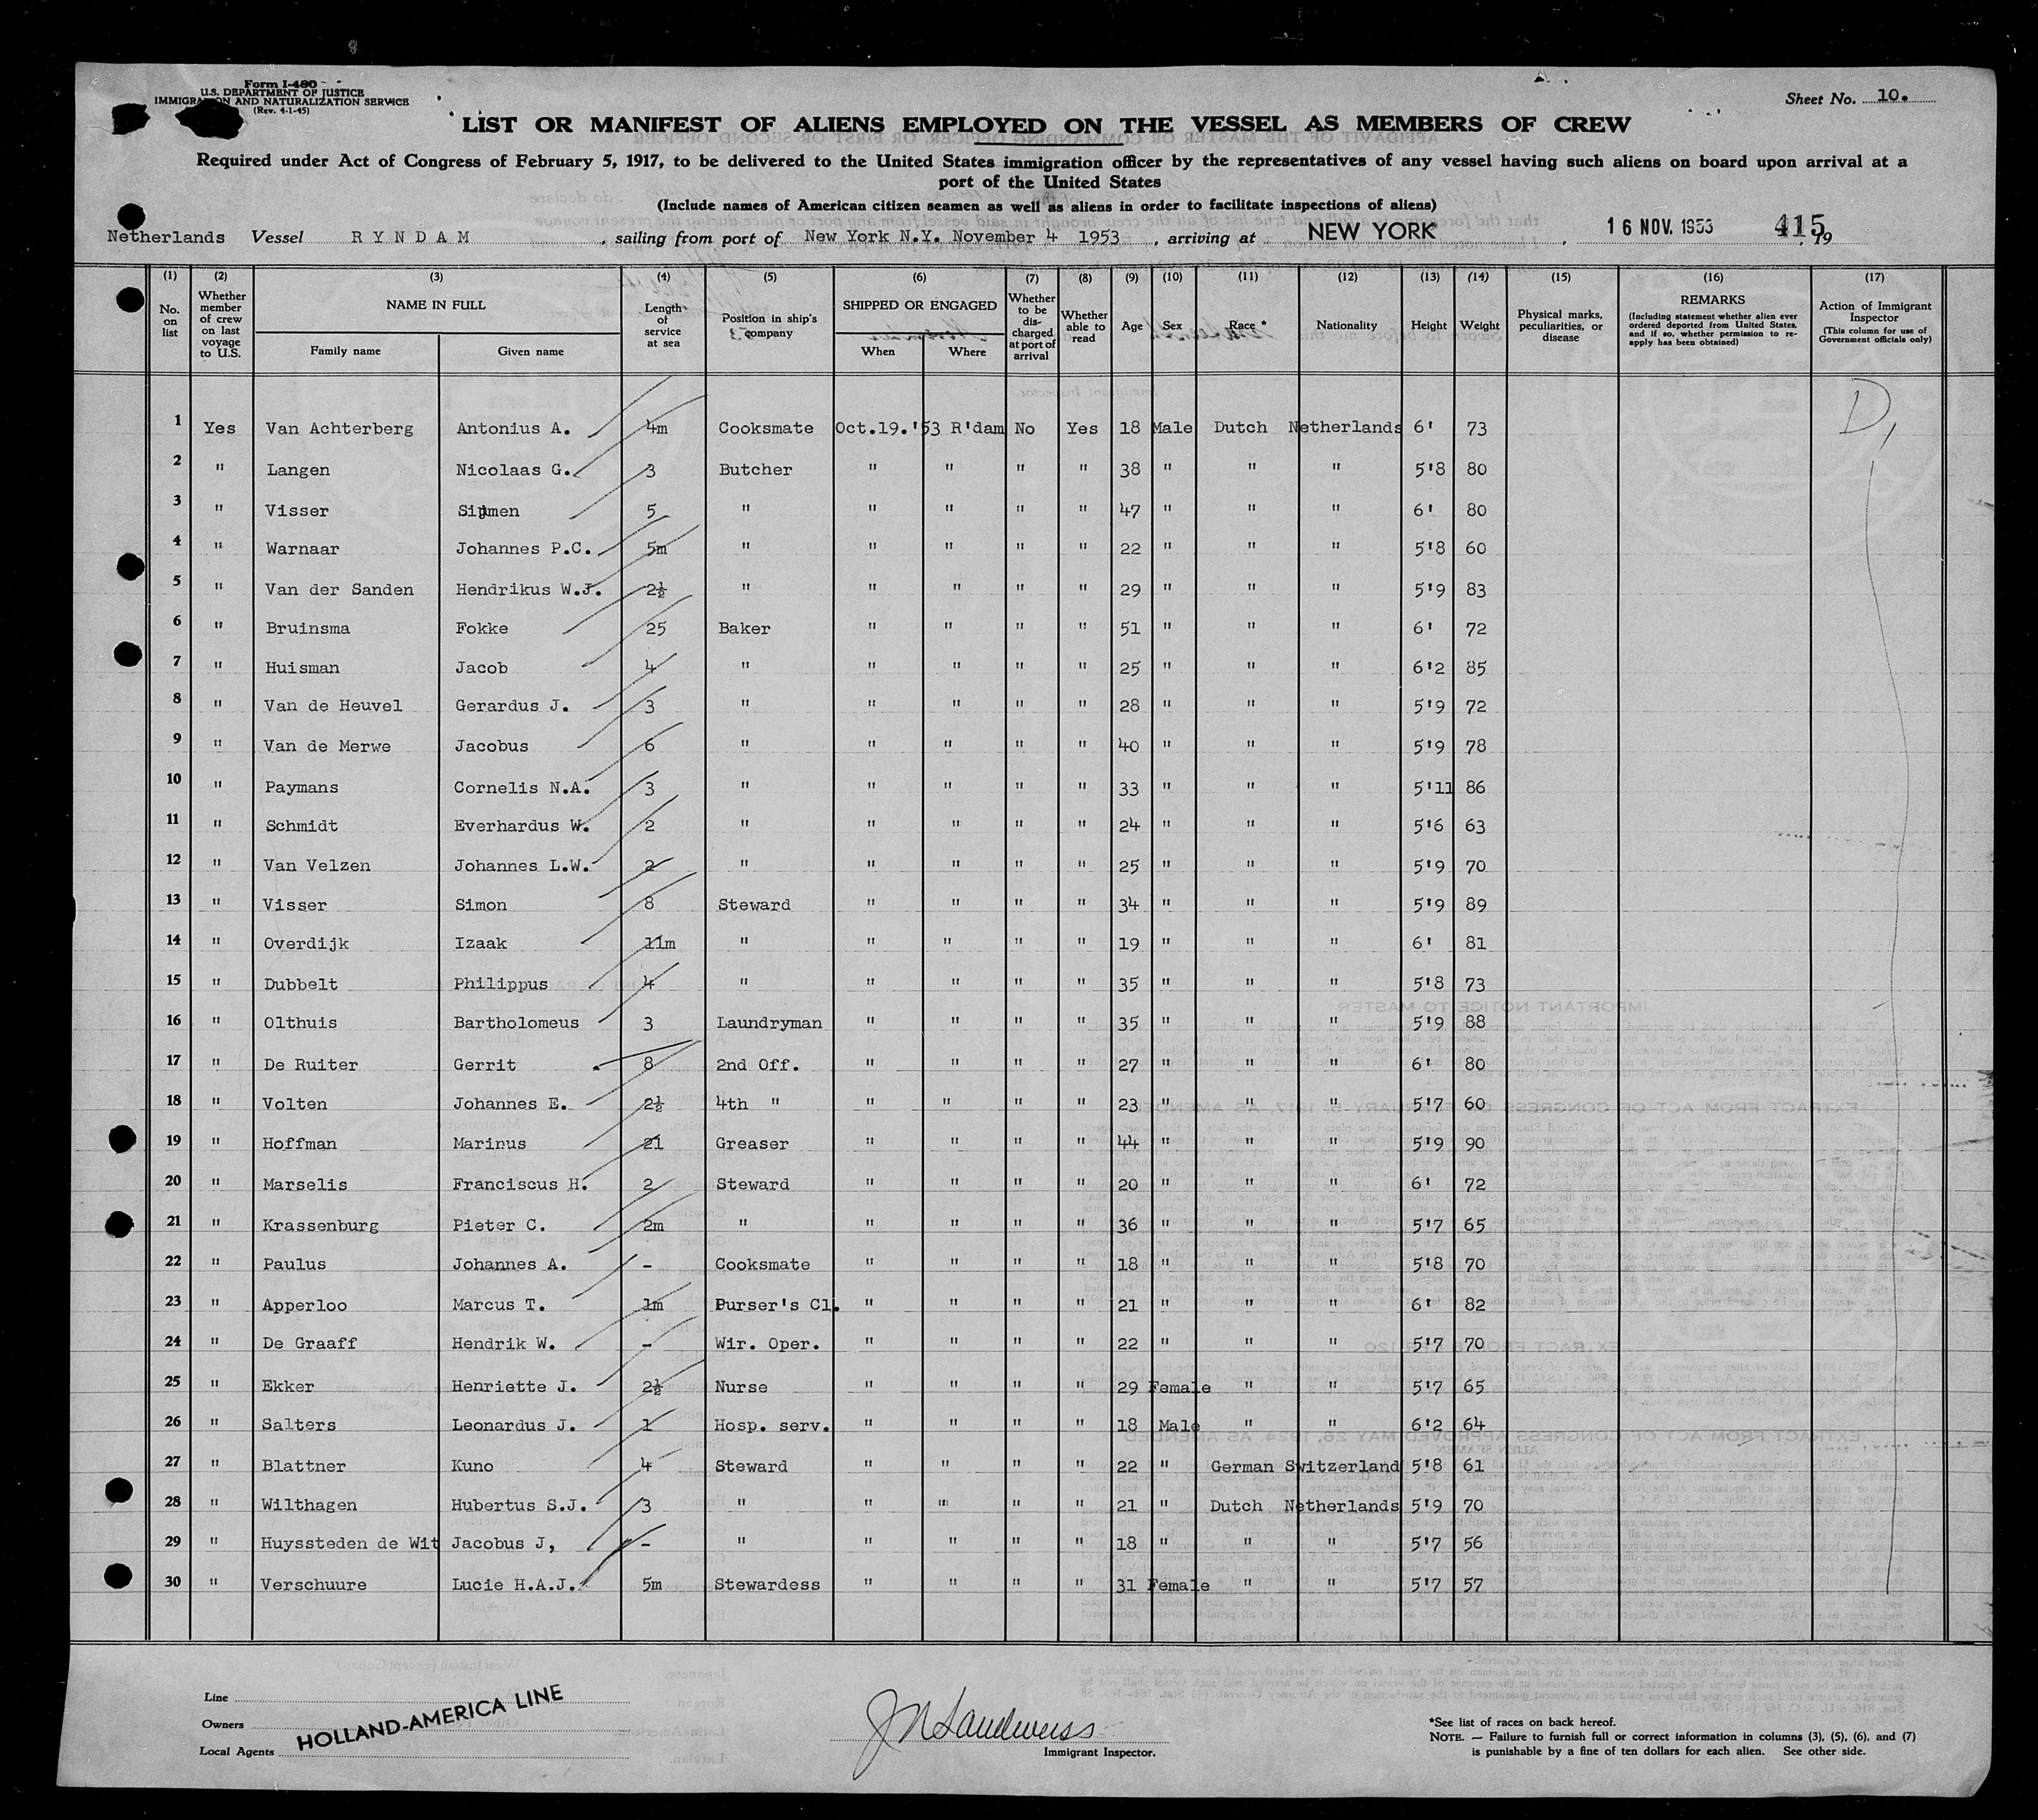 Form I-480
U.S. DEPARTMENT OF JUSTICE
IMMIGRATION AND NATURALIZATION SERVICE
(Rev. 4-1-45)
Sheet No. 10.
LIST OR MANIFEST OF ALIENS EMPLOYED ON THE VESSEL AS MEMBERS OF CREW
Required under Act of Congress of February 5, 1917, to be delivered to the United States immigration officer by the representatives of any vessel having such aliens on board upon arrival at a
port of the United States
(Include names of American citizen seamen as well as aliens in order to facilitate inspections of aliens)
Netherlands Vessel RYNDAM, sailing from port of New York N.Y. November 4 1953, arriving at NEW YORK, 16 NOV. 1953 415, 19
(1) (2) (3) (4) (5) (6) (7) (8) (9) (10) (11) (12) (13) (14) (15) (16) (17)
No. on list | Whether member of crew on last voyage to U.S. | NAME IN FULL Family name Given name | Length of service at sea | Position in ship's company | SHIPPED OR ENGAGED When Where | Whether to be discharged at port of arrival | Whether able to read | Age | Sex | Race * | Nationality | Height | Weight | Physical marks, peculiarities, or disease | REMARKS (Including statement whether alien ever ordered deported from United States, and if so, whether permission to reapply has been obtained) | Action of Immigrant Inspector (This column for use of Government officials only)
1 Yes Van Achterberg Antonius A. 4m Cooksmate Oct.19.'53 R'dam No Yes 18 Male Dutch Netherlands 6' 73 D,
2 " Langen Nicolaas G. 3 Butcher " " " " 38 " " " 5'8 80
3 " Visser Sijmen 5 " " " " " 47 " " " 6' 80
4 " Warnaar Johannes P.C. 5m " " " " " 22 " " " 5'8 60
5 " Van der Sanden Hendrikus W.J. 2½ " " " " " 29 " " " 5'9 83
6 " Bruinsma Fokke 25 Baker " " " " 51 " " " 6' 72
7 " Huisman Jacob 4 " " " " " 25 " " " 6'2 85
8 " Van de Heuvel Gerardus J. 3 " " " " " 28 " " " 5'9 72
9 " Van de Merwe Jacobus 6 " " " " " 40 " " " 5'9 78
10 " Paymans Cornelis N.A. 3 " " " " " 33 " " " 5'11 86
11 " Schmidt Everhardus W. 2 " " " " " 24 " " " 5'6 63
12 " Van Velzen Johannes L.W. 2 " " " " " 25 " " " 5'9 70
13 " Visser Simon 8 Steward " " " " 34 " " " 5'9 89
14 " Overdijk Izaak 11m " " " " " 19 " " " 6' 81
15 " Dubbelt Philippus 4 " " " " " 35 " " " 5'8 73
16 " Olthuis Bartholomeus 3 Laundryman " " " " 35 " " " 5'9 88
17 " De Ruiter Gerrit 8 2nd Off. " " " " 27 " " " 6' 80
18 " Volten Johannes E. 2½ 4th " " " " " 23 " " " 5'7 60
19 " Hoffman Marinus 21 Greaser " " " " 44 " " " 5'9 90
20 " Marselis Franciscus H. 2 Steward " " " " 20 " " " 6' 72
21 " Krassenburg Pieter C. 2m " " " " " 36 " " " 5'7 65
22 " Paulus Johannes A. - Cooksmate " " " " 18 " " " 5'8 70
23 " Apperloo Marcus T. 1m Purser's Cl. " " " " 21 " " " 6' 82
24 " De Graaff Hendrik W. - Wir. Oper. " " " " 22 " " " 5'7 70
25 " Ekker Henriette J. 2½ Nurse " " " " 29 Female " " 5'7 65
26 " Salters Leonardus J. 1 Hosp. serv. " " " " 18 Male " " 6'2 64
27 " Blattner Kuno 4 Steward " " " " 22 " German Switzerland 5'8 61
28 " Wilthagen Hubertus S.J. 3 " " " " " 21 " Dutch Netherlands 5'9 70
29 " Huyssteden de Wit Jacobus J, - " " " " " 18 " " " 5'7 56
30 " Verschuure Lucie H.A.J. 5m Stewardess " " " " 31 Female " " 5'7 57
Line
Owners
Local Agents
HOLLAND-AMERICA LINE
J N Sandweiss
Immigrant Inspector.
*See list of races on back hereof.
NOTE. — Failure to furnish full or correct information in columns (3), (5), (6), and (7)
is punishable by a fine of ten dollars for each alien. See other side.